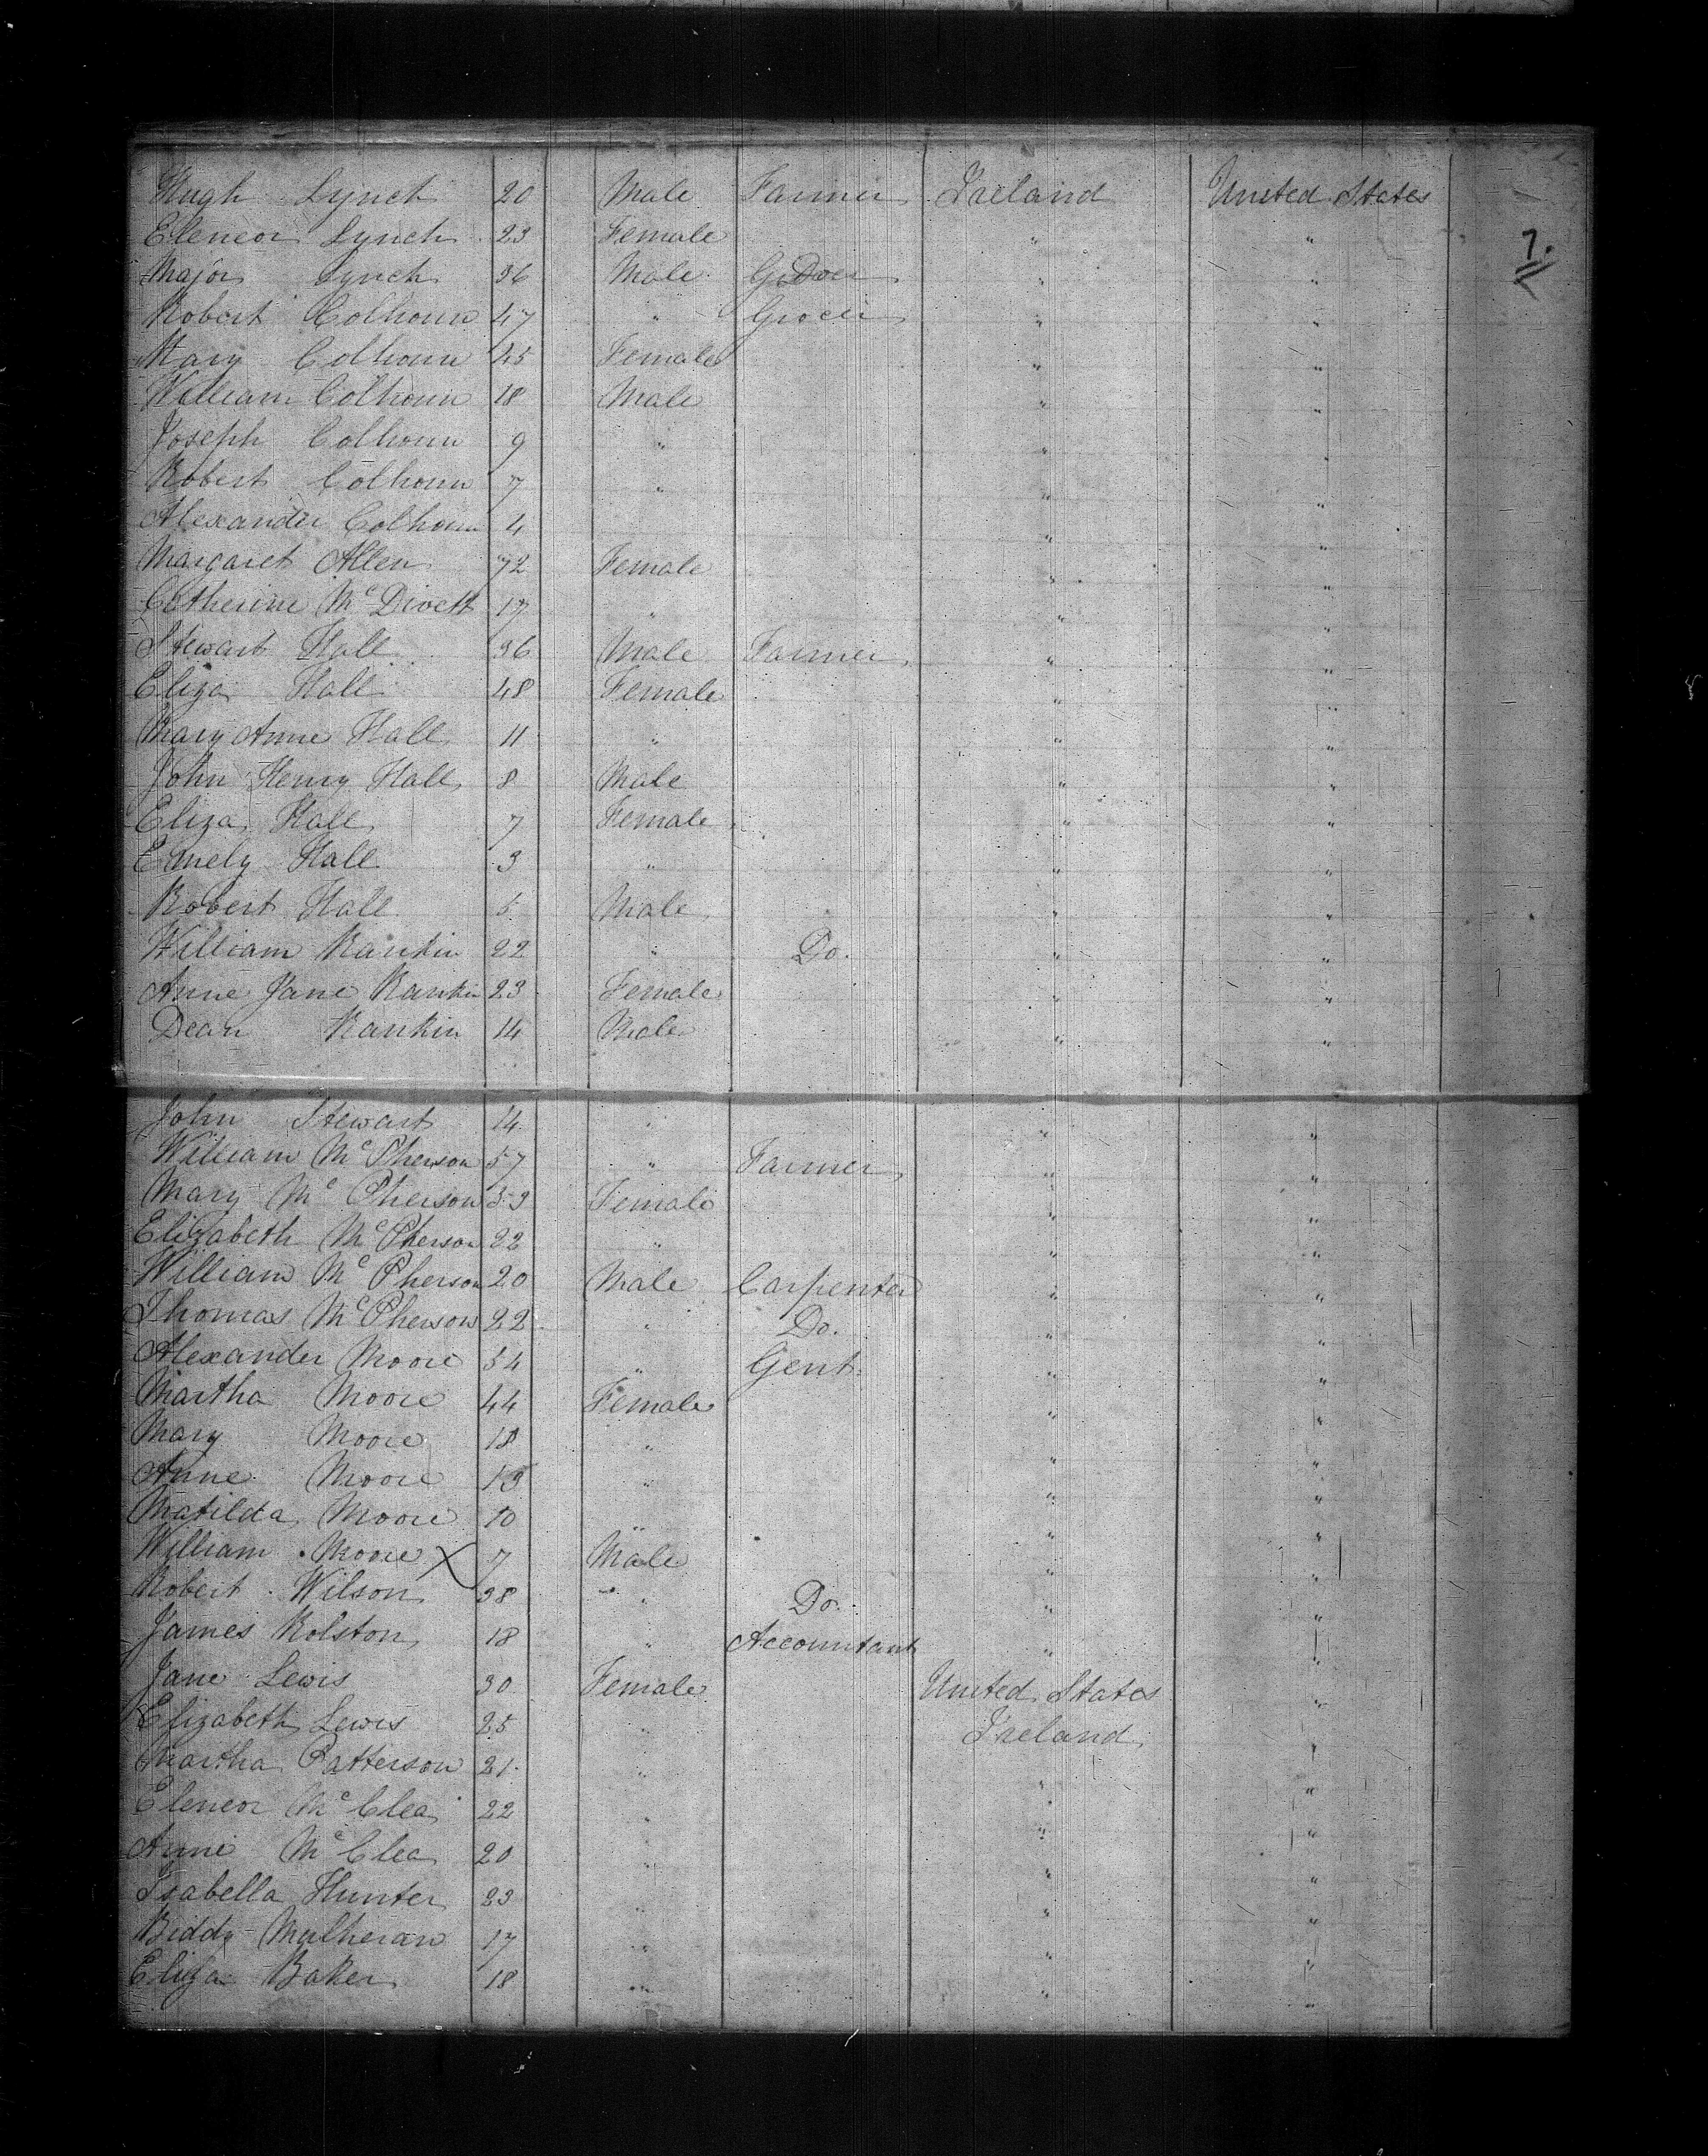 Hugh Lynch 20 Male Farmer Ireland United States
Eleneor Lynch 23 Female " "
7.
Major Lynch 36 Male " "
Robert Colhoun 47 " Grocer " "
Mary Colhoun 45 Female " "
William Colhoun 18 Male " "
Joseph Colhoun 9 " " "
Robert Colhoun 7 " " "
Alexander Colhoun 4 " "
Margaret Allen 72 Female " "
Catherine McDivett 17 " " "
Stewart Hall 36 Male Farmer " "
Eliza Hall 48 Female " "
Mary Anne Hall 11 " " "
John Henry Hall 8 Male " "
Eliza Hall 7 Female " "
Emely Hall 3 " " "
Robert Hall 5 Male " "
William Rankin 22 " Do. " "
Anne Jane Rankin 23 Female " "
Dean Rankin 14 Male " "
John Stewart 14 " " "
William McPherson 57 " Farmer " "
Mary McPherson 53 Female " "
Elizabeth McPherson 22 " " "
William McPherson 20 Male Carpenter " "
Thomas McPherson 22 " Do. " "
Alexander Moore 54 " Gent. " "
Martha Moore 44 Female " "
Mary Moore 18 " " "
Anne Moore 13 " " "
Matilda Moore 10 " " "
William Moore X 7 Male " "
Robert Wilson 38 " Do. " "
James Rolston 18 " Accountant " "
Jane Lewis 30 Female United States "
Elizabeth Lewis 25 " Ireland "
Martha Patterson 21 " " "
Eleneor McClea 22 " " "
Anne McClea 20 " " "
Isabella Hunter 23 " " "
Biddy Mulheran 17 " " "
Eliza Baker 18 " " "